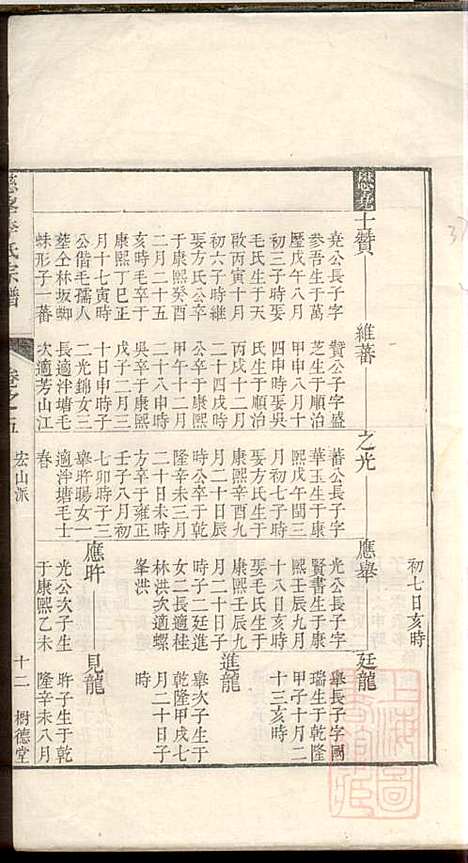 初七日亥時
士贊
維蕃
之光
應舉
廷龍
堯公長子字
參吾生于萬
歷戊午八月
初三子時娶
毛氏生于天
啟丙寅十月
初六子時繼
娶方氏公卒
于康熙癸酉
二月二十五
亥時毛卒于
康熙丁巳正
月十七寅時
公偕毛孺人
塟仝林坂蜘
蛛形子一蕃
贊公子字盛
芝生于順治
甲申八月十
四申時娶吳
氏生于順治
丙戌十二月
二十四戌時
公卒于康熙
甲午十二月
二十八申時
吳卒于康熙
戊子二月三
十日申時子
二光錦女三
長適泮塘毛
次適芳山江
蕃公長子字
華玉生于康
熙戊午閏三
月初七子時
娶方氏生于
康熙辛酉九
月二十日辰
時公卒于乾
隆辛未三月
二十日未時
方卒于雍正
壬子八月初
七卯時子三
舉旿暘女一
適泮塘毛士
春
光公長子字
賢書生于康
熙壬辰九月
十八日亥時
娶毛氏生于
康熙壬辰九
月二十日子
時子二廷進
女二長適桂
林洪次適螺
峯洪
舉長子字國
瑞生于乾隆
甲子十月二
十三亥時
進龍
舉次子生于
乾隆甲戌七
月二十日子
時
應旿
光公次子生
于康熙乙未
見龍
旿子生于乾
隆辛未八月
氏宗譜
卷之五
宏山派
十二
樹德堂